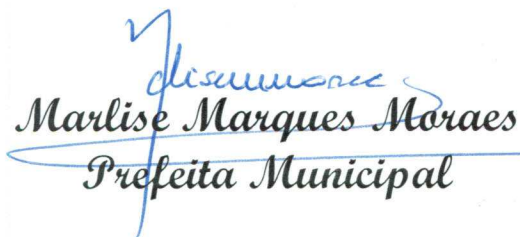 Marlise Marques Moraes
Prefeita Municipal